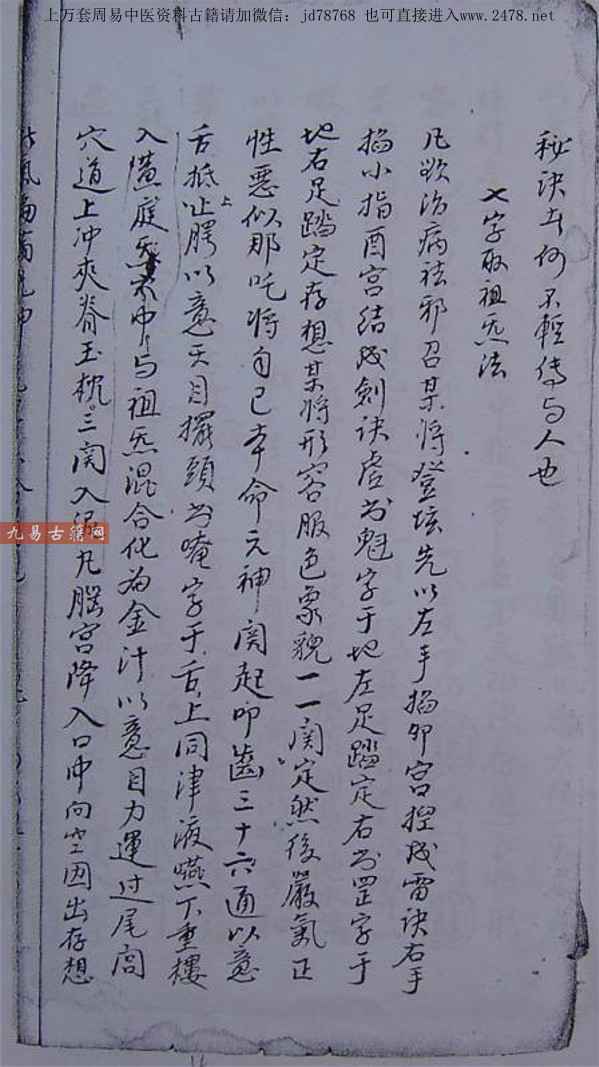 上万套周易中医资料古籍请加微信: jd78768 也可直接进入www.2478.net
秘诀去何不輕傳与人也
乂字取祖炁法
凡欲治病祛邪召某将登坛先以左手搯卯宫揑成雷诀右手
搯小指酉宫结成剣诀虚书魁字于地左足踏定右书罡字于
地右足踏定存想某将形容服色象貌一一関定然後嚴氣正
性惡似那吒将自己本命元神関起叩齒三十六通以意
舌抵上腭以意天目擺頭书唵字于舌上同津液嚥下重樓
入黄庭炁中与祖炁混合化为金汁以意目力運过尾閭
穴道上冲夾脊玉枕三関入泥丸腦宫降入口中向空因出存想
九易古籍网